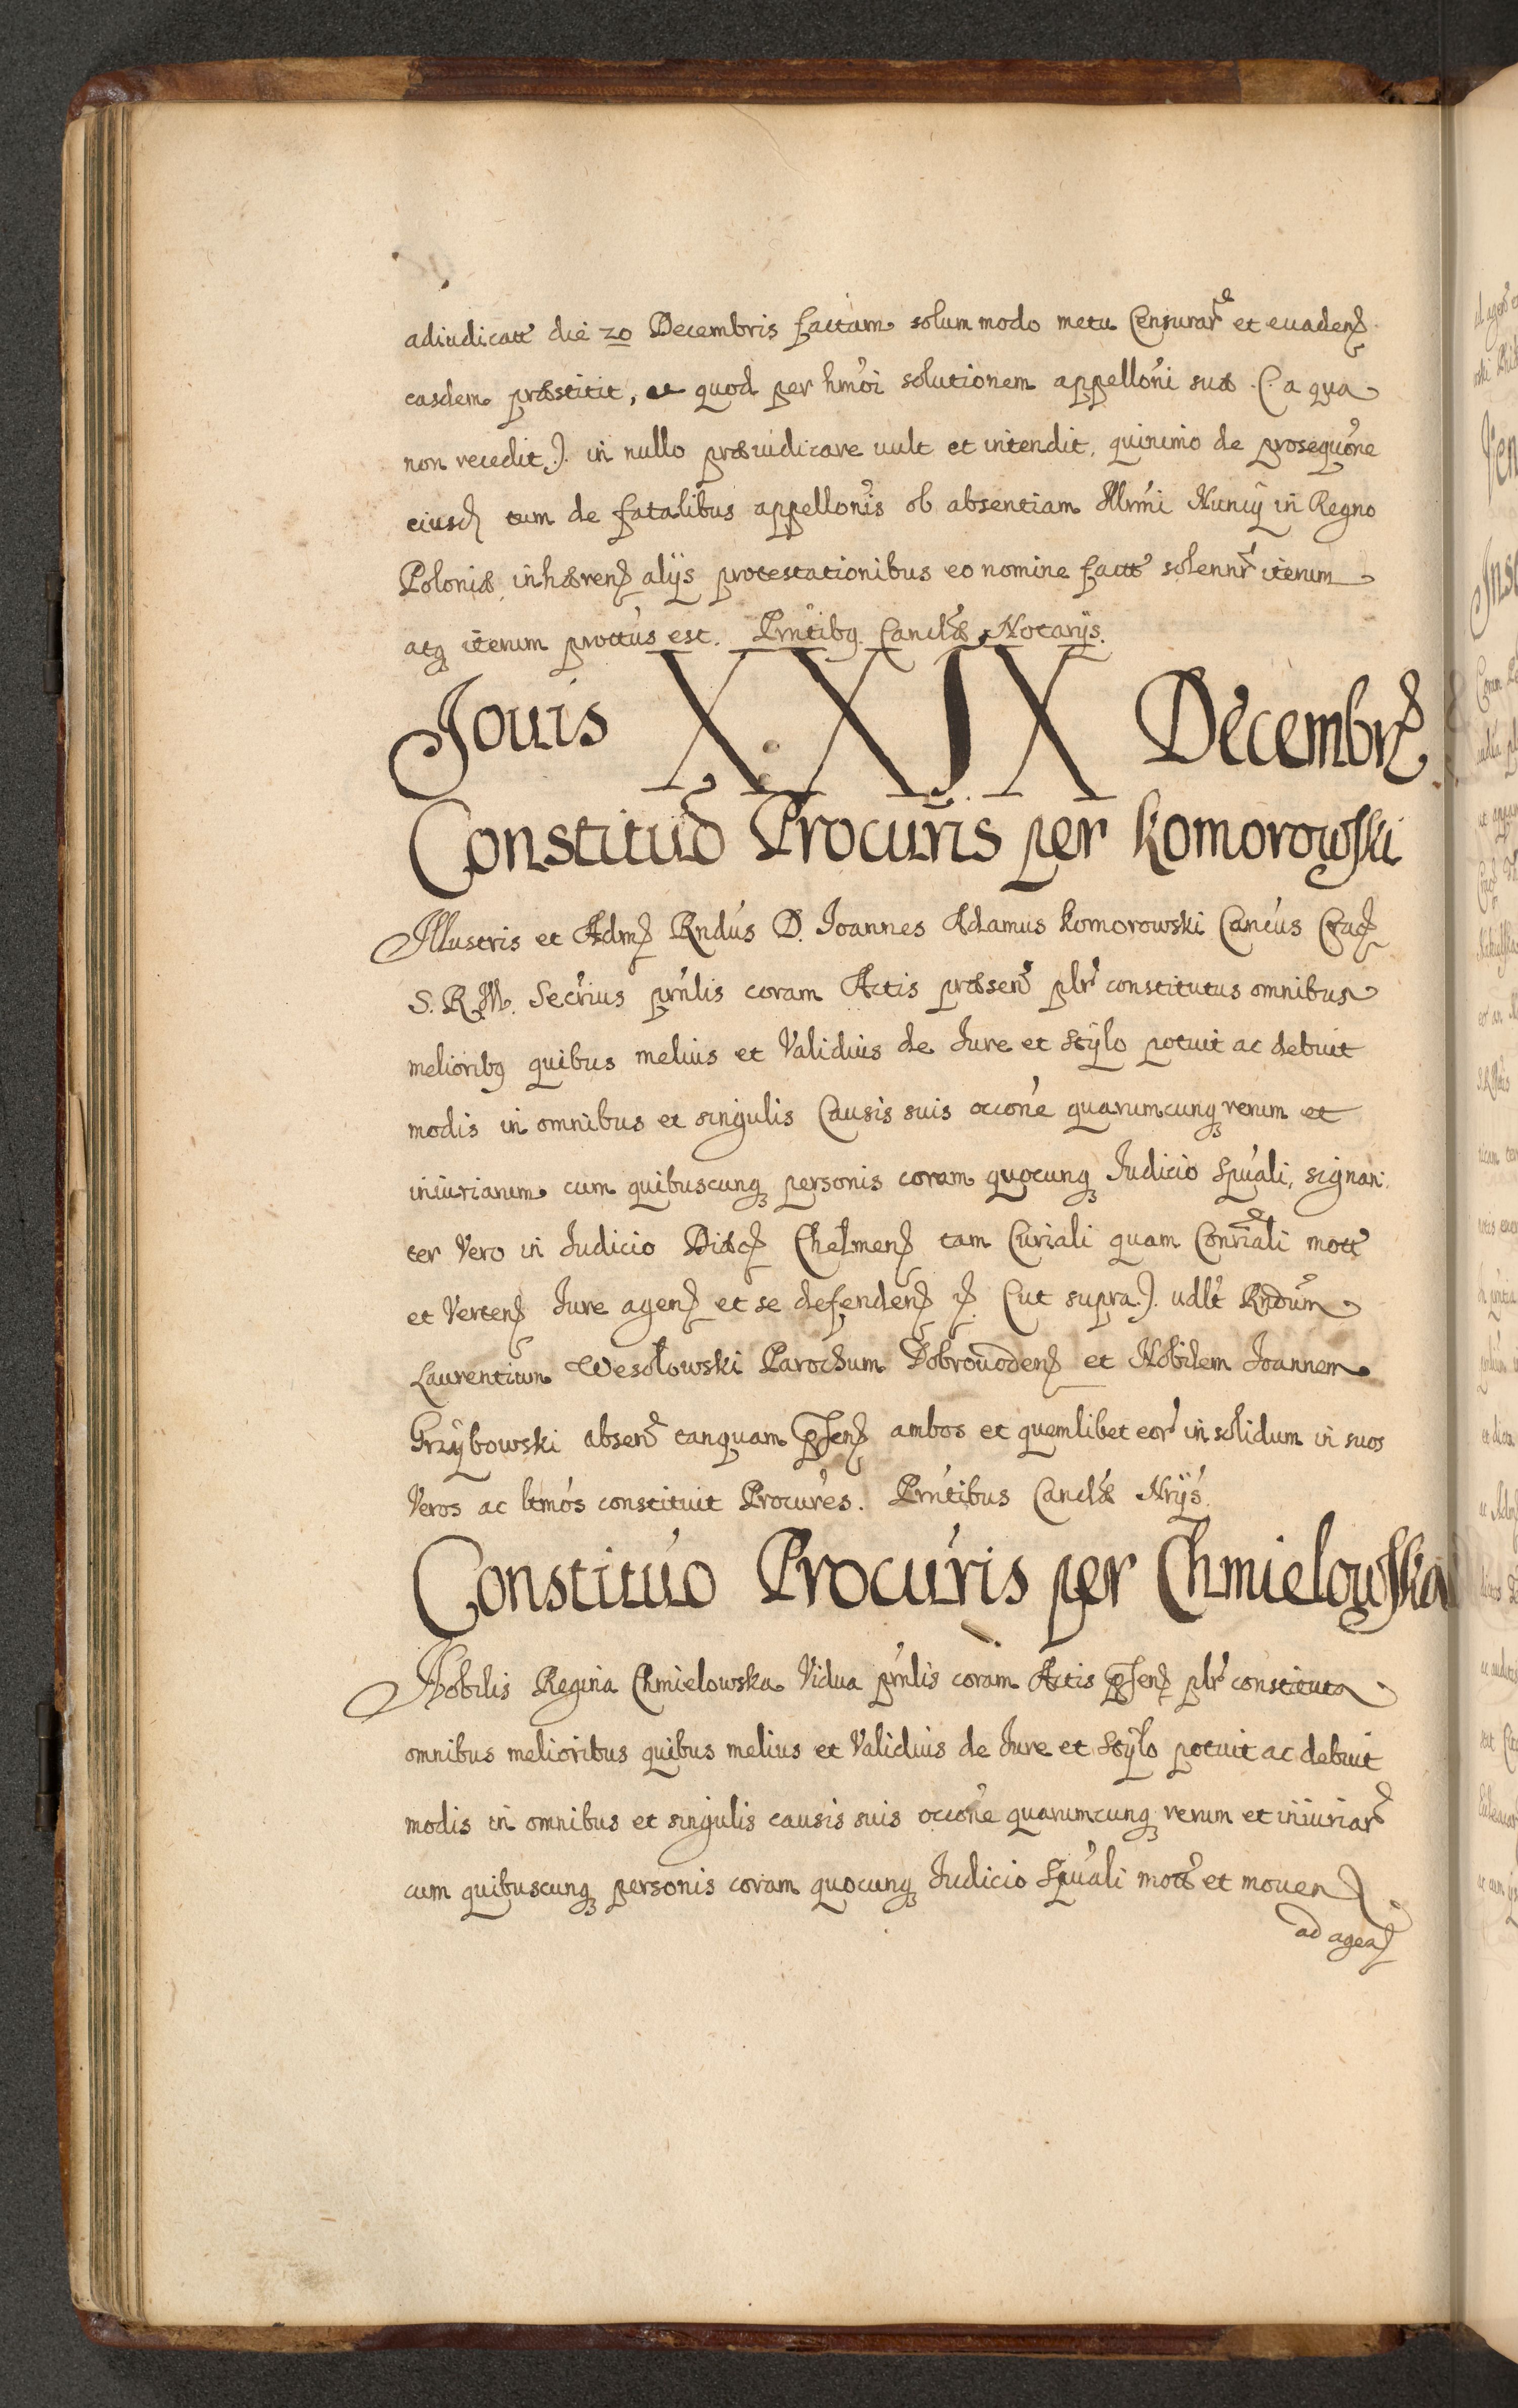 adiudicatt die 20 Decembris factam solum modo metu Censurar et euadend
easdem præstitit, et quod per hmoi solutionem appelloni suæ (a qua
non recedit). in nullo præiudicare uult et intendit, quinimo de prosequone
eiusd tum de fatalibus appellonis ob absentiam Illrmi Nuncÿ in Regno
Poloniæ, inhærend alÿs protestationibus eo nomine fact solennr iterum
atq iterum prottus est. Prntibq. Cancllæ Notarÿs.
Jouis XXIX Decembr
Constituo Procuris per Komorowski
Illustris et Adm Rndus D. Joannes Adamus Komorowski Canćus Crac
S. R. M. Secrius prnlis coram Actis præsen plr constitutus omnibus
melioribq quibus melius et Validius de Jure et Stÿlo potuit ac debuit
modis in omnibus et singulis Causis suis occone quarumcunq rerum et
iniuriarum cum quibuscunq personis coram quocunq Judicio Spuali, signan
ter Vero in Judicio Diæc Chelmen tam Curiali quam Conrali mott
et Verten Jure agend et se defendend (ut supra). udlt Rndum
Laurentium Wesołowski Parochum Dobrouoden et Nobilem Joannem
Grzÿbowski absen tanquam psen ambos et quemlibet eor in solidum in suos
Veros ac ltmos constituit Procures. Prntibus Canclæ Nrÿs.
Constituo Procuris per Chmielowska
Nobilis Regina Chmielowska Vidua prnlis coram Actis psen plr constituta
omnibus melioribus quibus melius et Validius de Jure et Stÿlo potuit ac debuit
modis in omnibus et singulis causis suis occone quarumcunq rerum et iniuriar
cum quibuscunq personis coram quocunq Judicio Spuali mott et mouend
ad agend